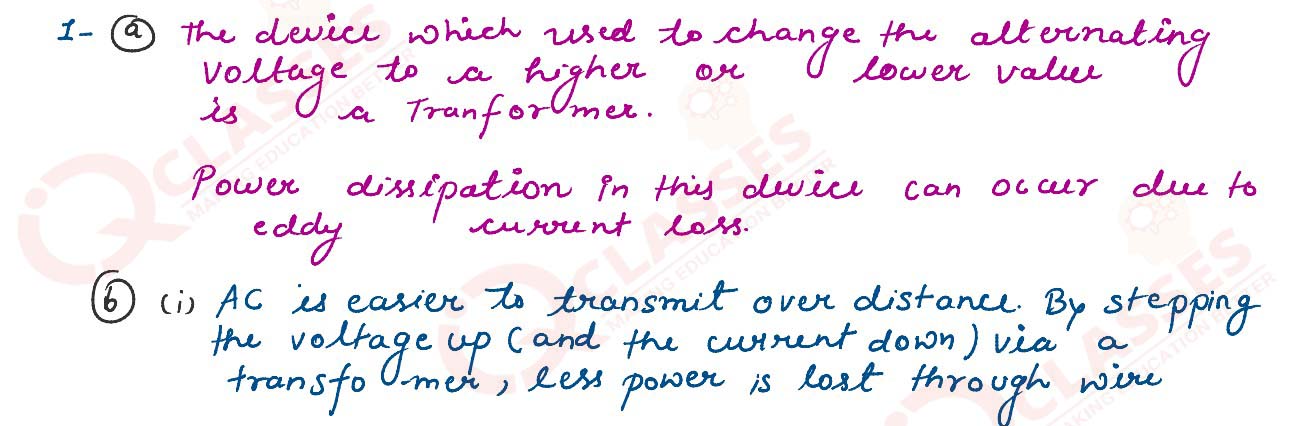 1- (a) The device which used to change the alternating
voltage to a higher or lower value
is a Tranformer.
Power dissipation in this device can occur due to
eddy current loss.
(b) (i) AC is easier to transmit over distance. By stepping
the voltage up (and the current down) via a
transfo mer, less power is lost through wire
iQ CLASSES
MAKING EDUCATION BETTER
iQ CLASSES
MAKING EDUCATION BETTER
iQ CLASSES
MAKING EDUCATION BETTER